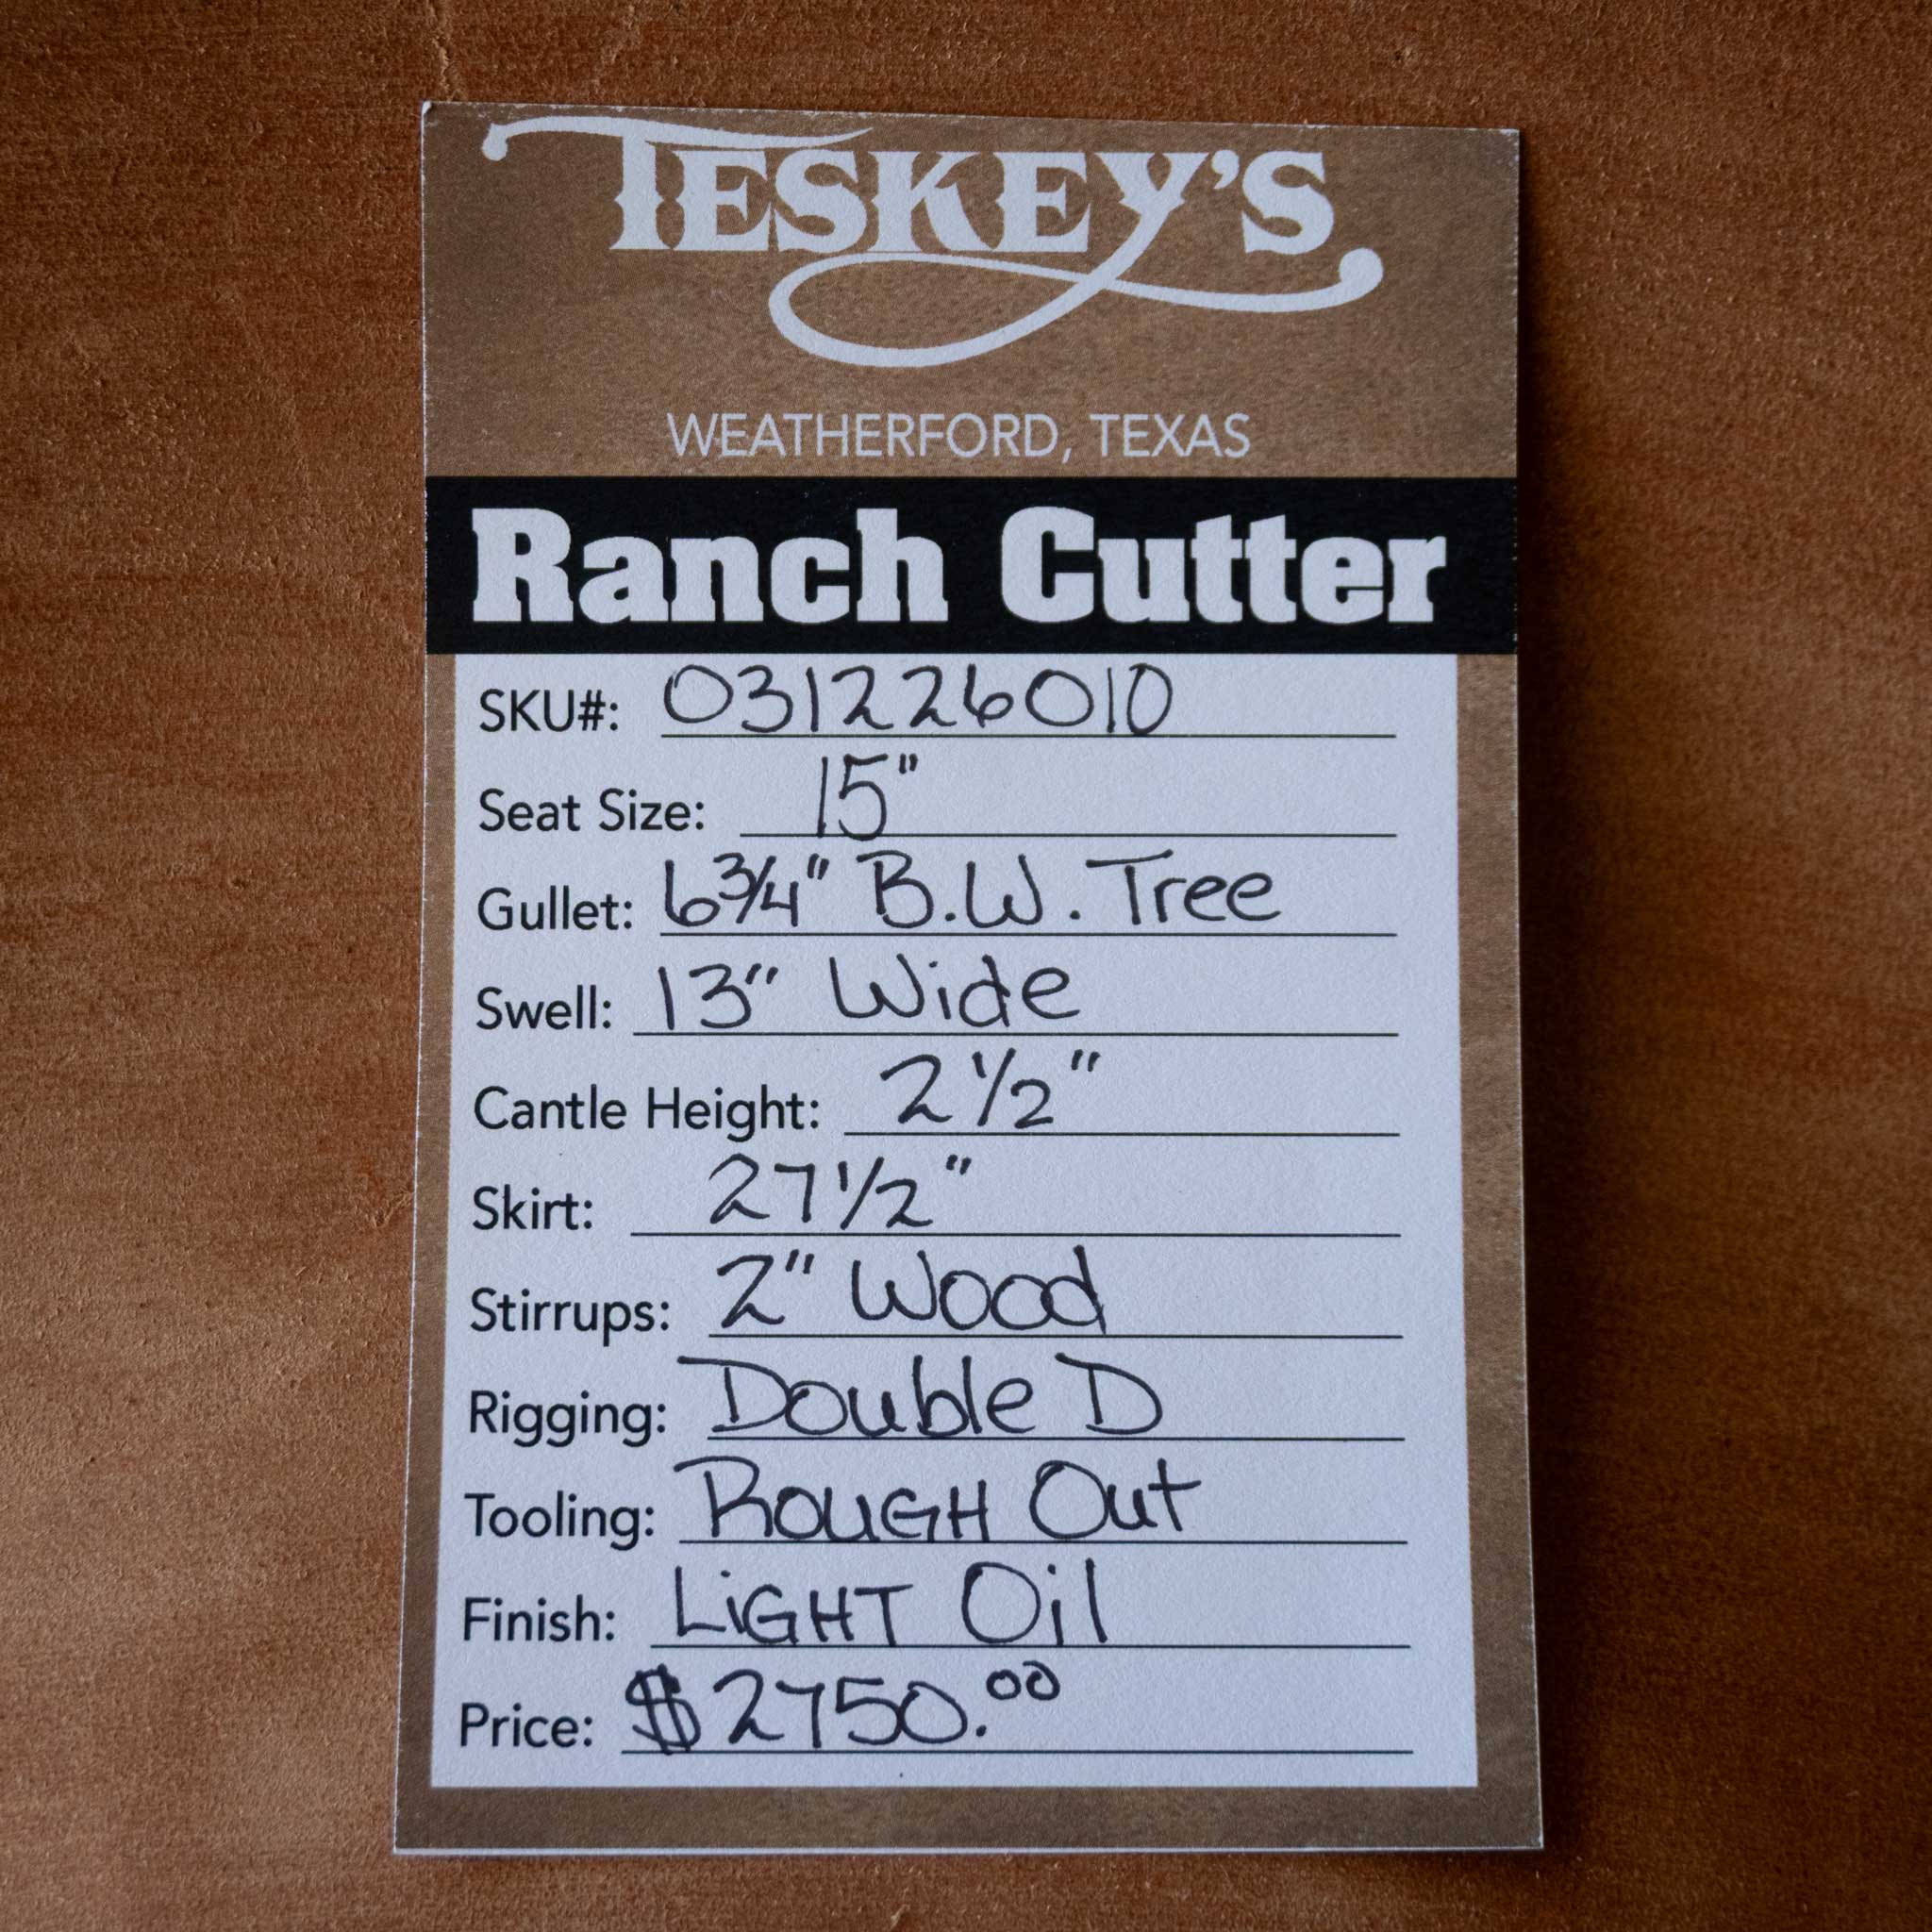 TESKEY'S
WEATHERFORD, TEXAS
Ranch Cutter
SKU#: 031226010
Seat Size: 15"
Gullet: 6 3/4" B.W. Tree
Swell: 13" Wide
Cantle Height: 2 1/2"
Skirt: 27 1/2"
Stirrups: 2" Wood
Rigging: Double D
Tooling: ROUGH Out
Finish: LiGHT Oil
Price: $2750.00